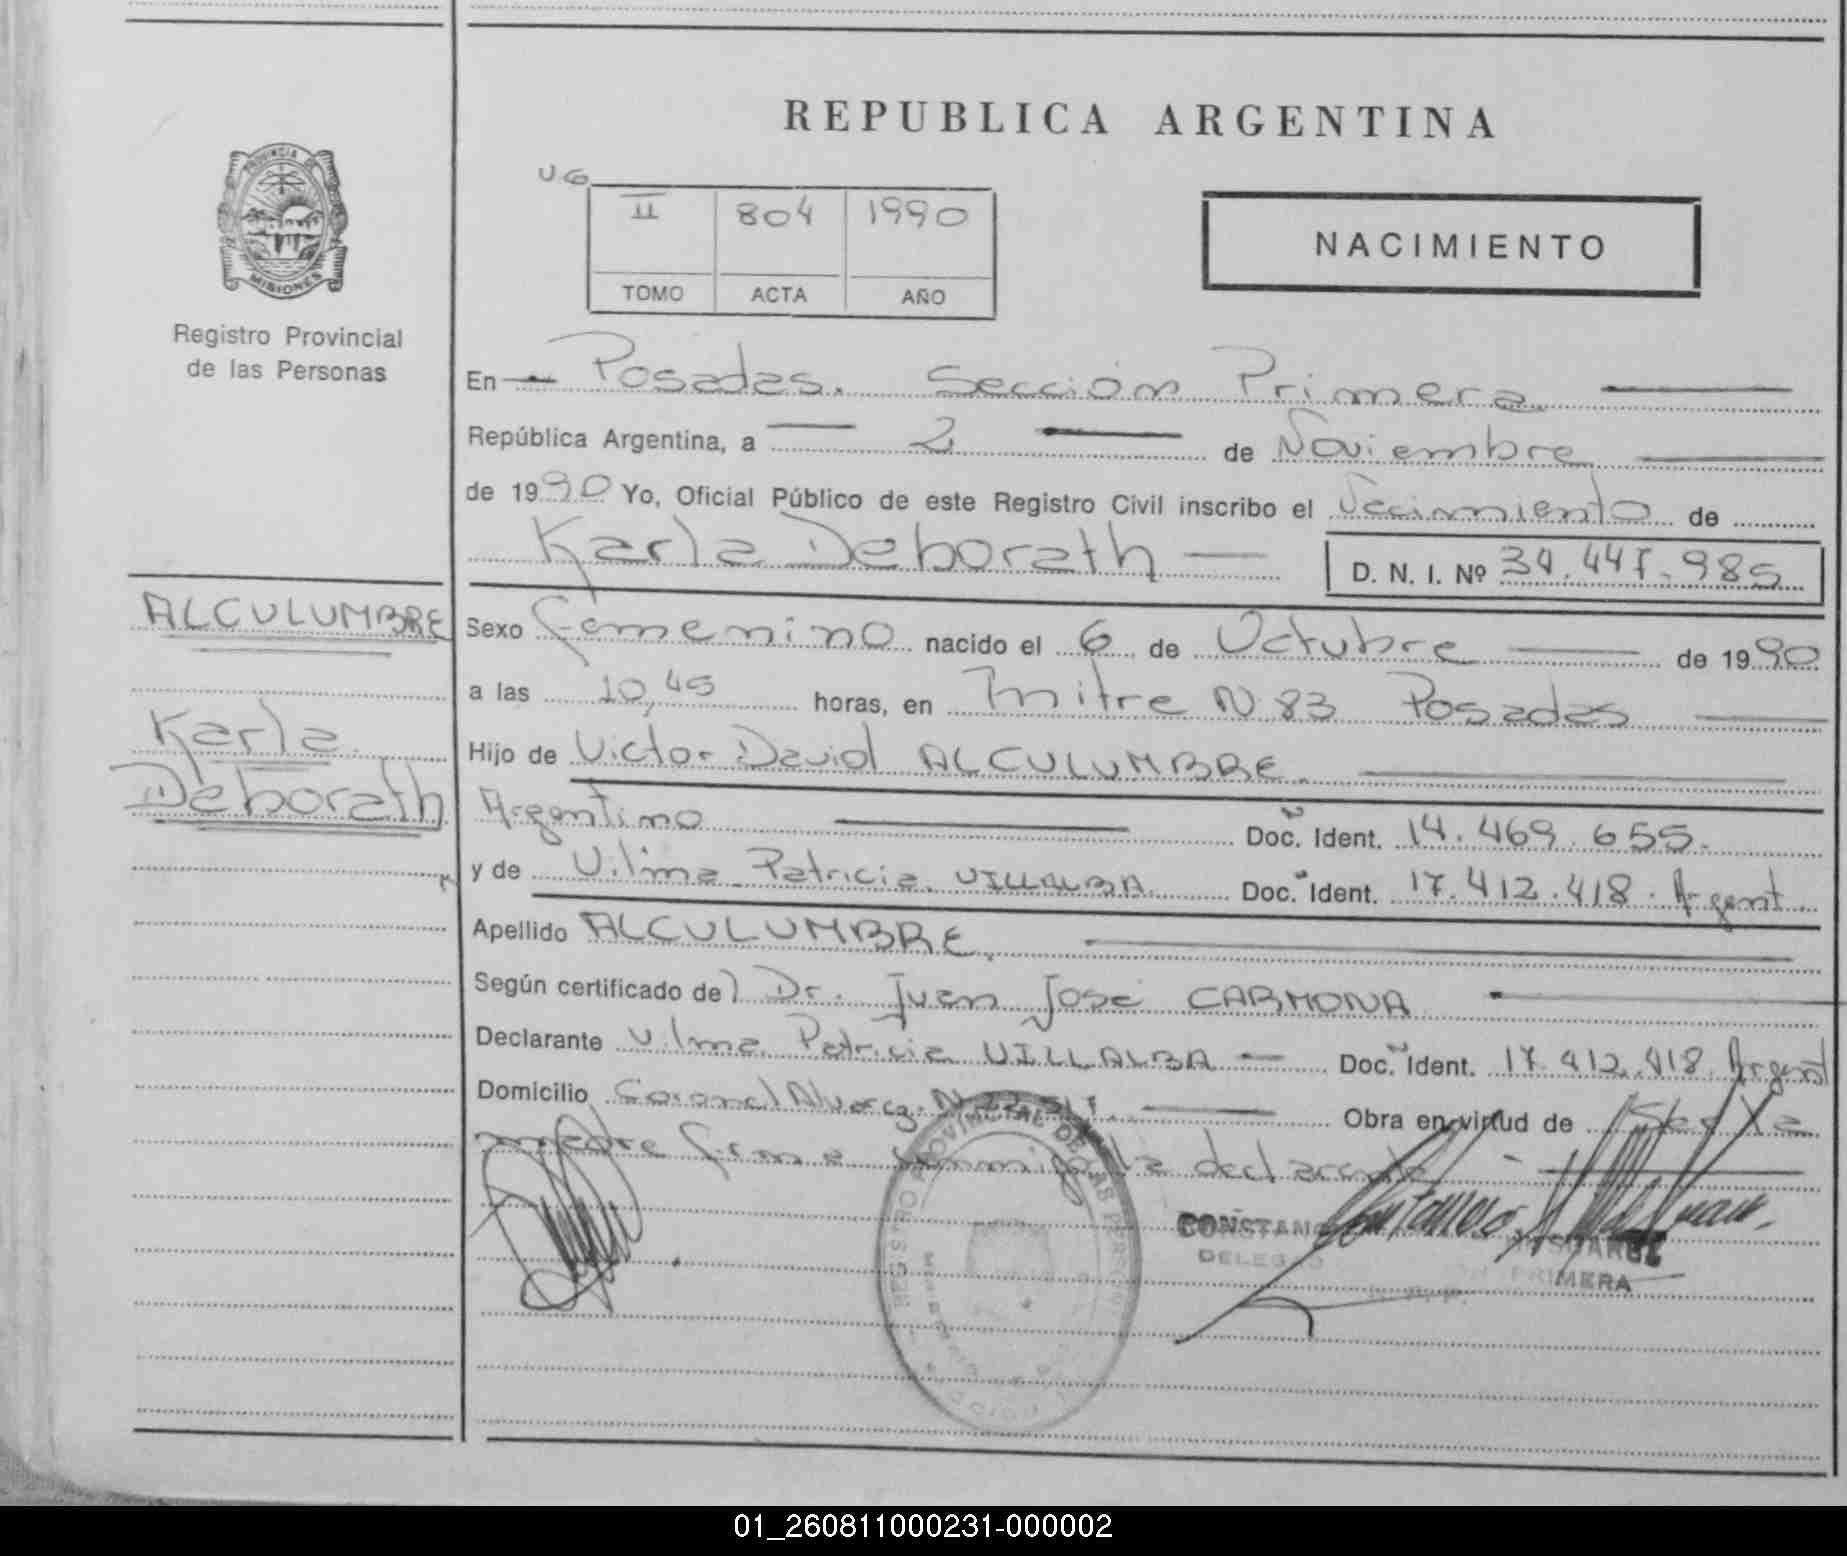 REPUBLICA ARGENTINA
PROVINCIA DE
MISIONES
Registro Provincial
de las Personas
U.G.
II 804 1990
TOMO ACTA AÑO
NACIMIENTO
En Posadas. Sección Primera
República Argentina, a 2 de Noviembre
de 1990 Yo, Oficial Público de este Registro Civil inscribo el Nacimiento de
Karla Deborath
D. N. I. Nº 34.447.985
ALCULUMBRE
Karla
Deborath
Sexo Femenino nacido el 6 de Octubre de 1990
a las 10,45 horas, en Mitre N 83 Posadas
Hijo de Victor David ALCULUMBRE.
Argentino Doc. Ident. 14.469.655.
y de Vilma Patricia VILLALBA Doc. Ident. 17.412.418. Argent.
Apellido ALCULUMBRE.
Según certificado del Dr. Juan José CARMONA
Declarante Vilma Patricia VILLALBA Doc. Ident. 17.412.418 Argent
Domicilio Coronel Alvarez N Obra en virtud de
madre firma conmigo la declarante
REGISTRO PROVINCIAL DE LAS PERSONAS
DELEG
PRIMERA
01_260811000231-000002